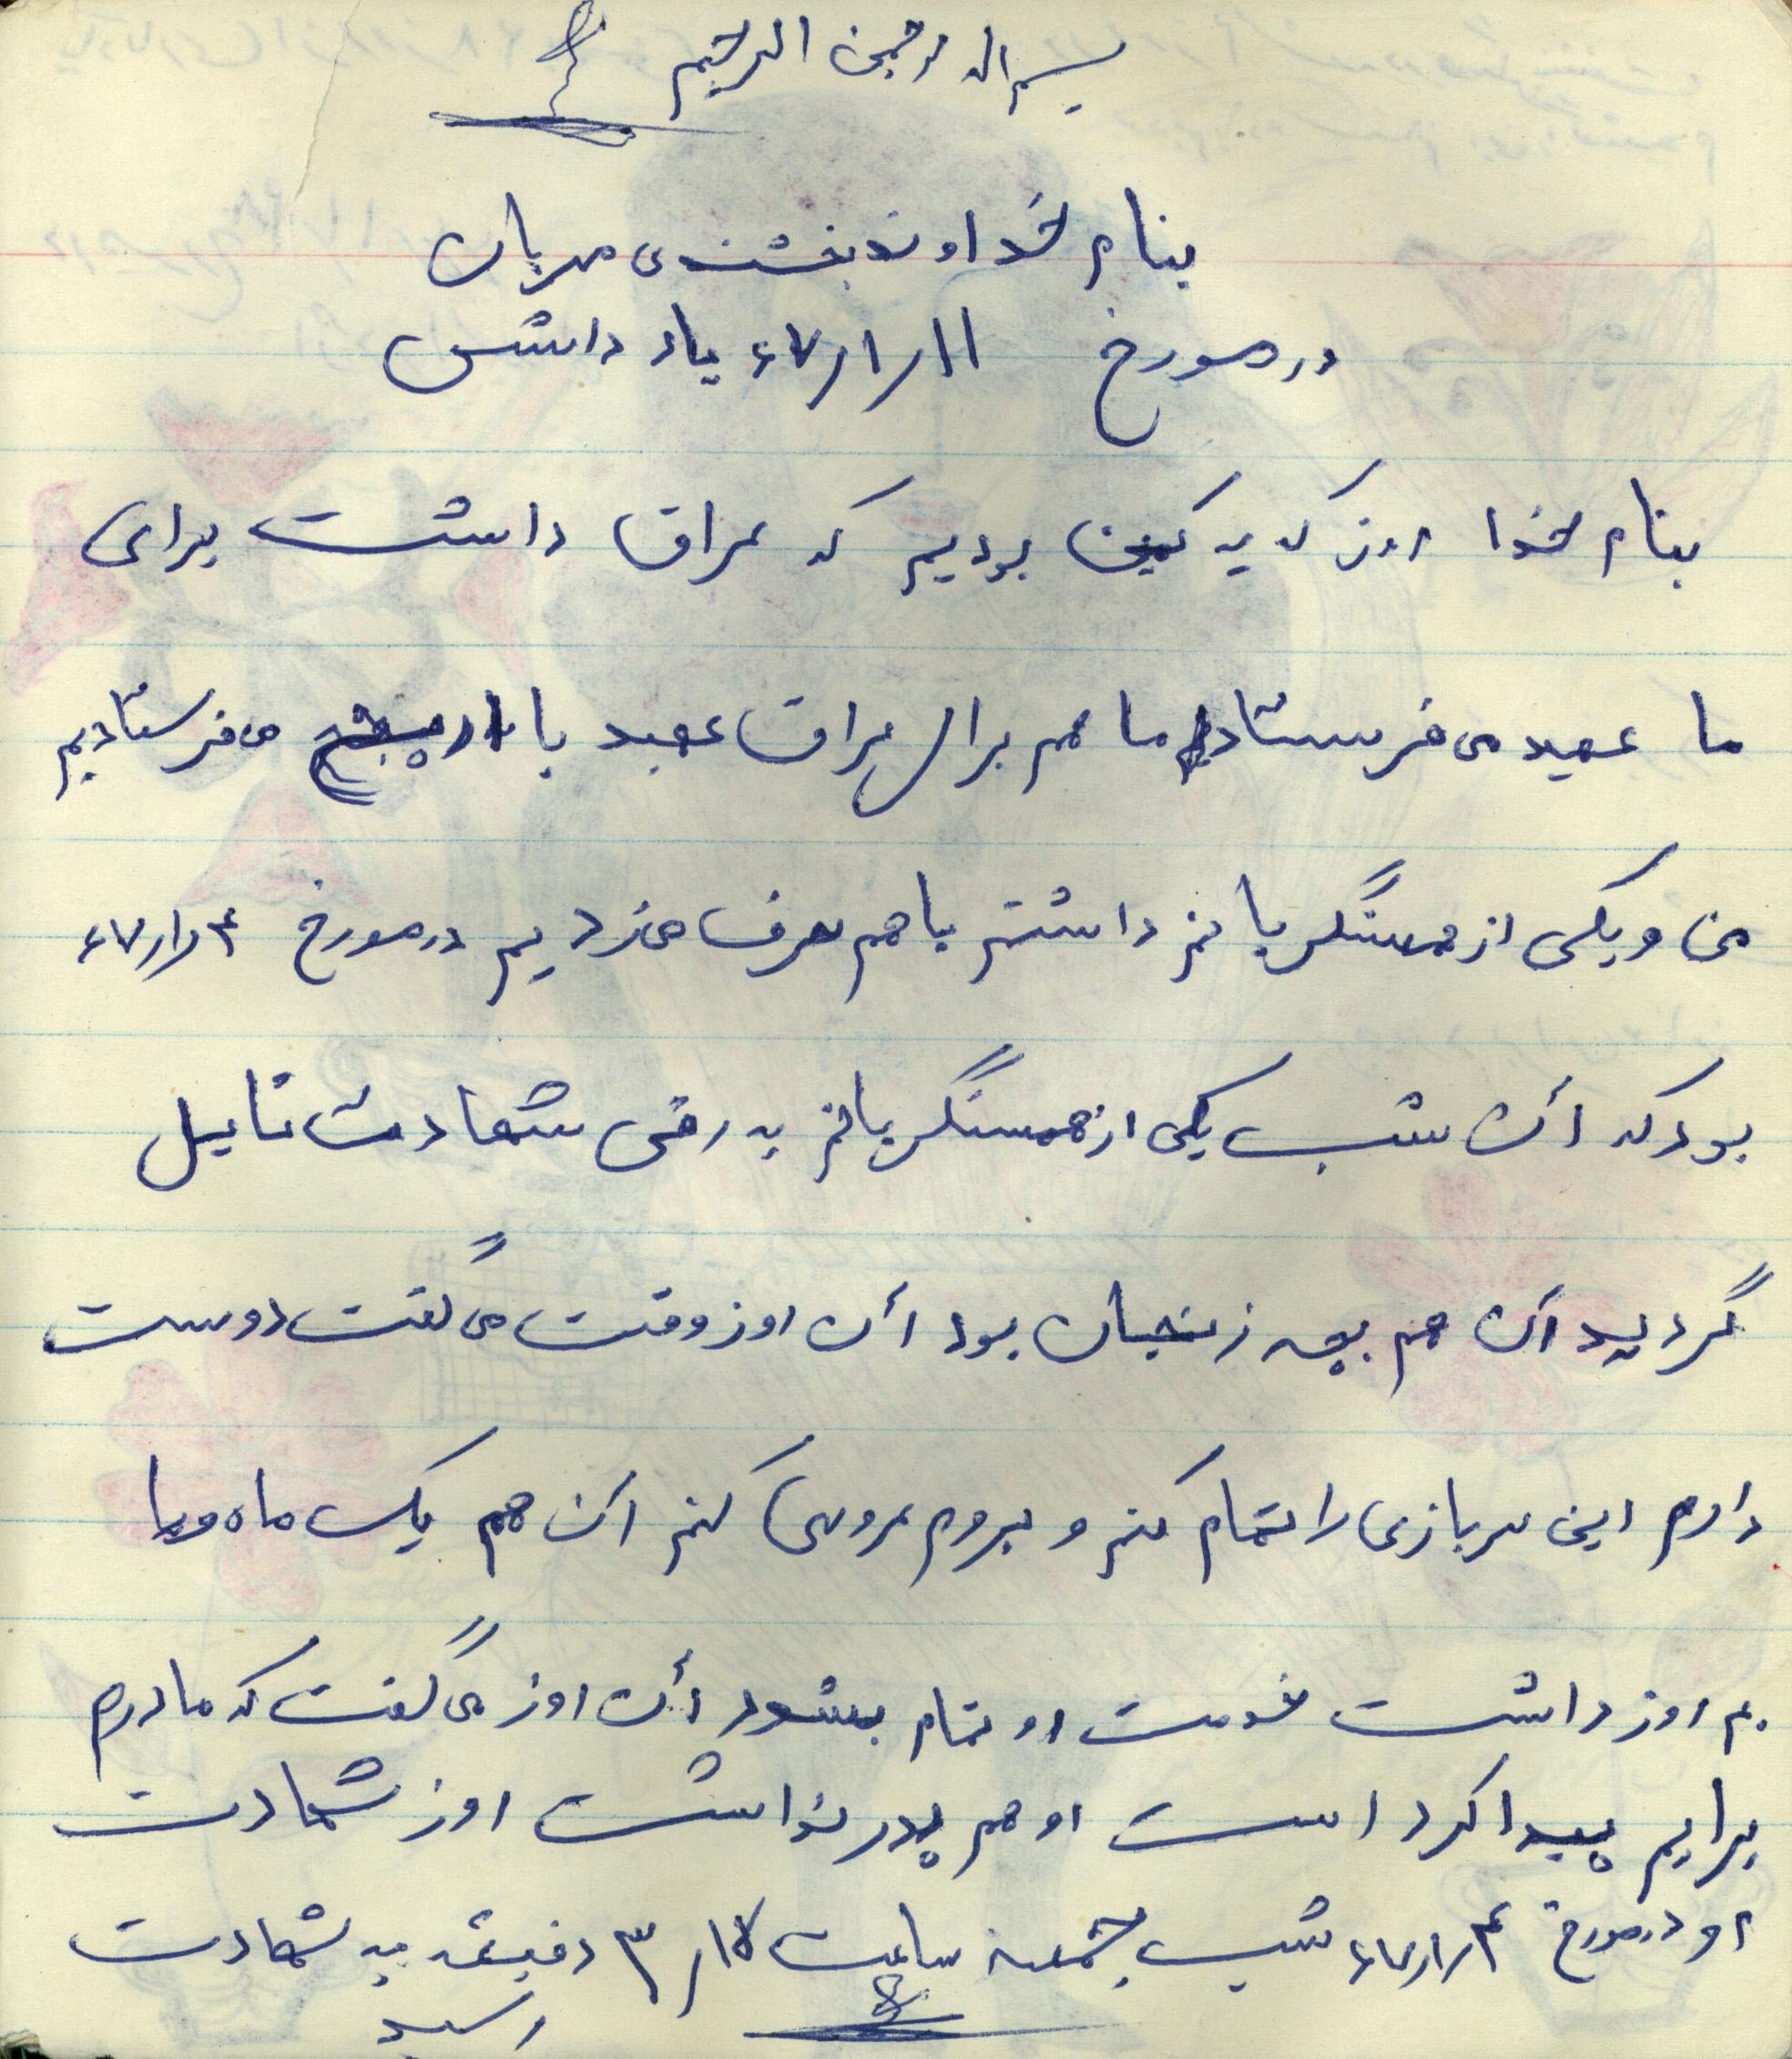 بسم اله رحمن الرحیم
بنام خداوند بخشنده‌ی مهربان
در مورخ ۱۱/۱/۶۷ یاد داشتی
بنام خدا روز که به کمین بودیم که عراق داشت برای
ما عمید می فرستاد ما هم برای عراق عمید با می فرستادیم
من و یکی از همسنگر یانم داشتم با هم حرف می زدیم در مورخ ۴/۱/۶۷
بود که آن شب یکی از همسنگر یانم به رفی شهادت نایل
گردید آن هم بچه زنجان بود آن روز وقت می گفت دوست
دارم این سربازی را تمام کنم و بروم عروسی کنم آن هم یک ماه و یا
۲۰ روز داشت خدمت او تمام بشود آن روز می گفت که مادرم
برایم پیدا کرد است او هم پدر نداشت روز شهادت
او در مورخ ۴/۱/۶۷ شب جمعه ساعت دقیقه به شهادت
رسید